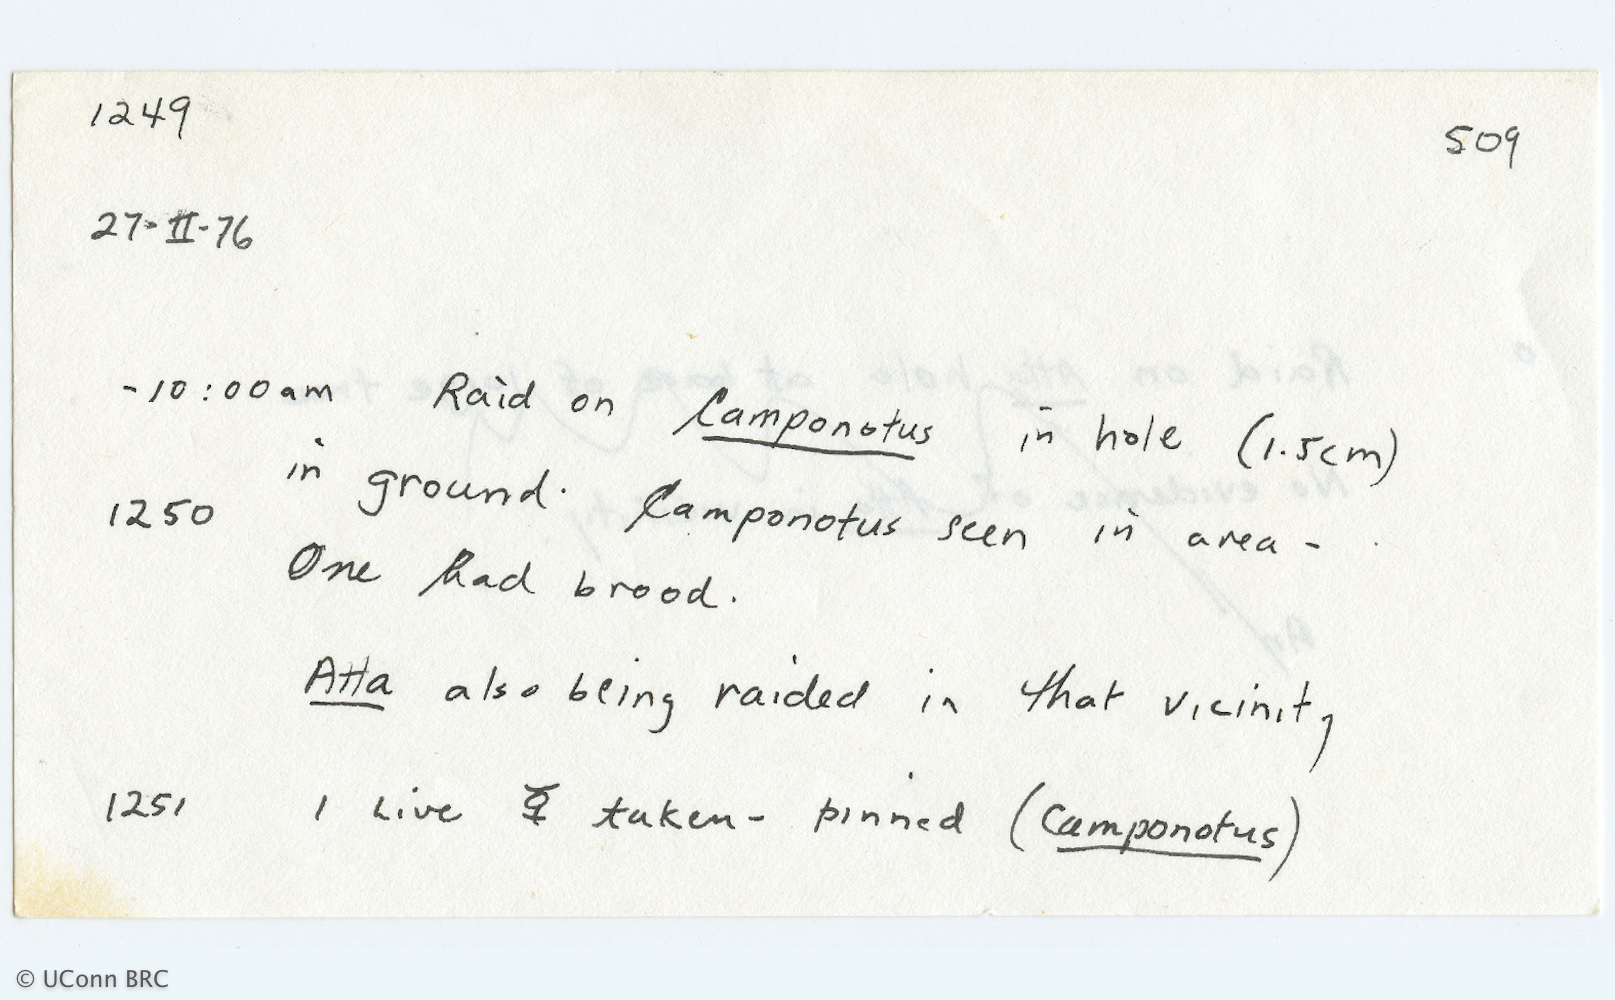 1249
509
27-II-76
-10:00am Raid on Camponotus in hole (1.5cm)
in ground. Camponotus seen in area -
1250
One had brood.
Atta also being raided in that vicinity
1251 1 Live ☿ taken - pinned (Camponotus)
© UConn BRC